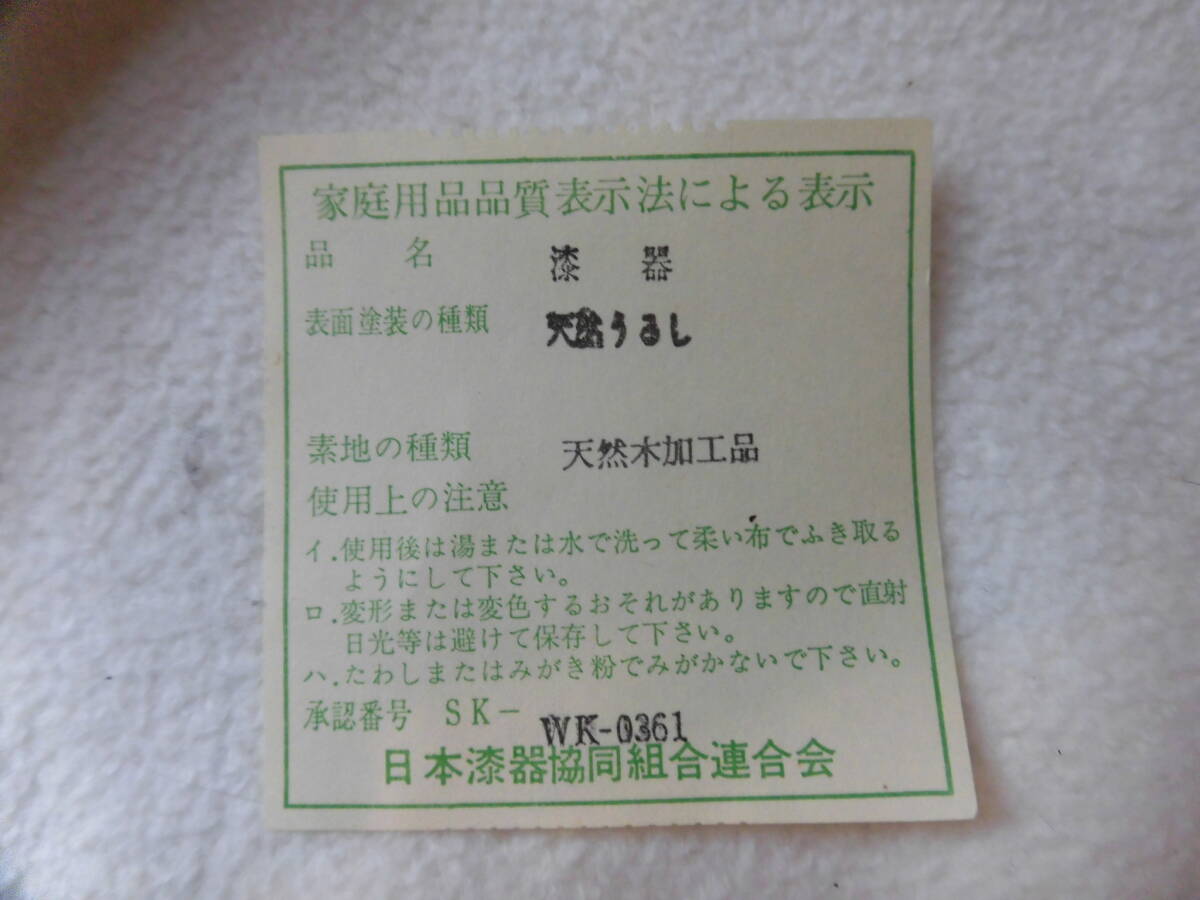 家庭用品品質表示法による表示
品 名 漆 器
表面塗装の種類 天然うるし
素地の種類 天然木加工品
使用上の注意
イ.使用後は湯または水で洗って柔い布でふき取る
ようにして下さい。
ロ.変形または変色するおそれがありますので直射
日光等は避けて保存して下さい。
ハ.たわしまたはみがき粉でみがかないで下さい。
承認番号 SK- WK-0361
日本漆器協同組合連合会